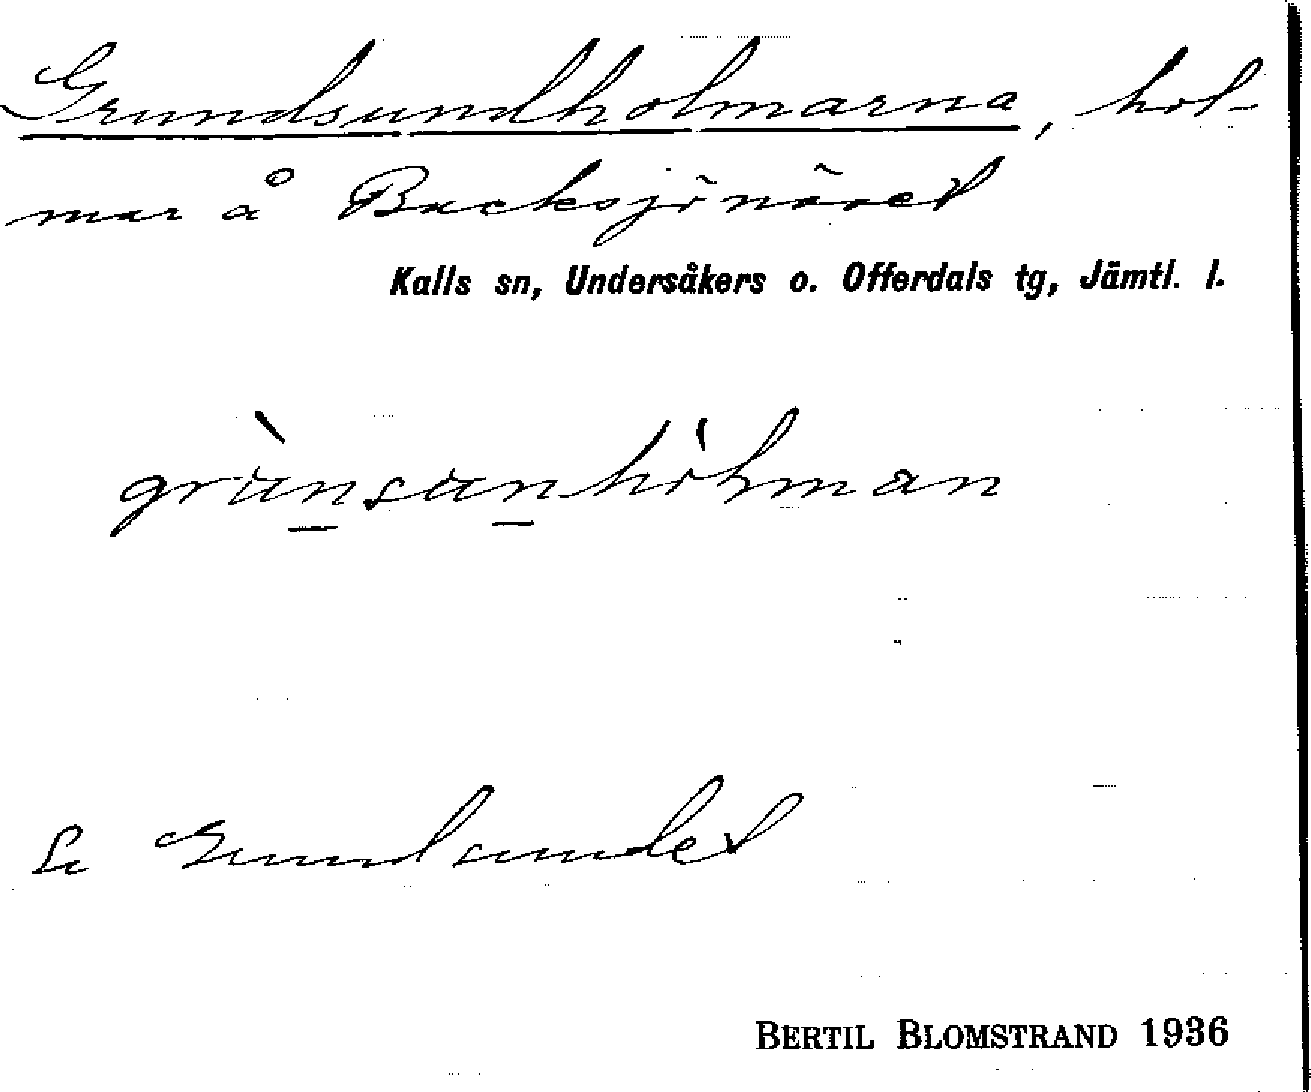 Grundsundholmarna, hol-
mar å Backsjönöret
Kalls sn, Undersåkers o. Offerdals tg, Jämtl. l.
grùnsunhòlman
Se Grundsundet
BERTIL BLOMSTRAND 1936